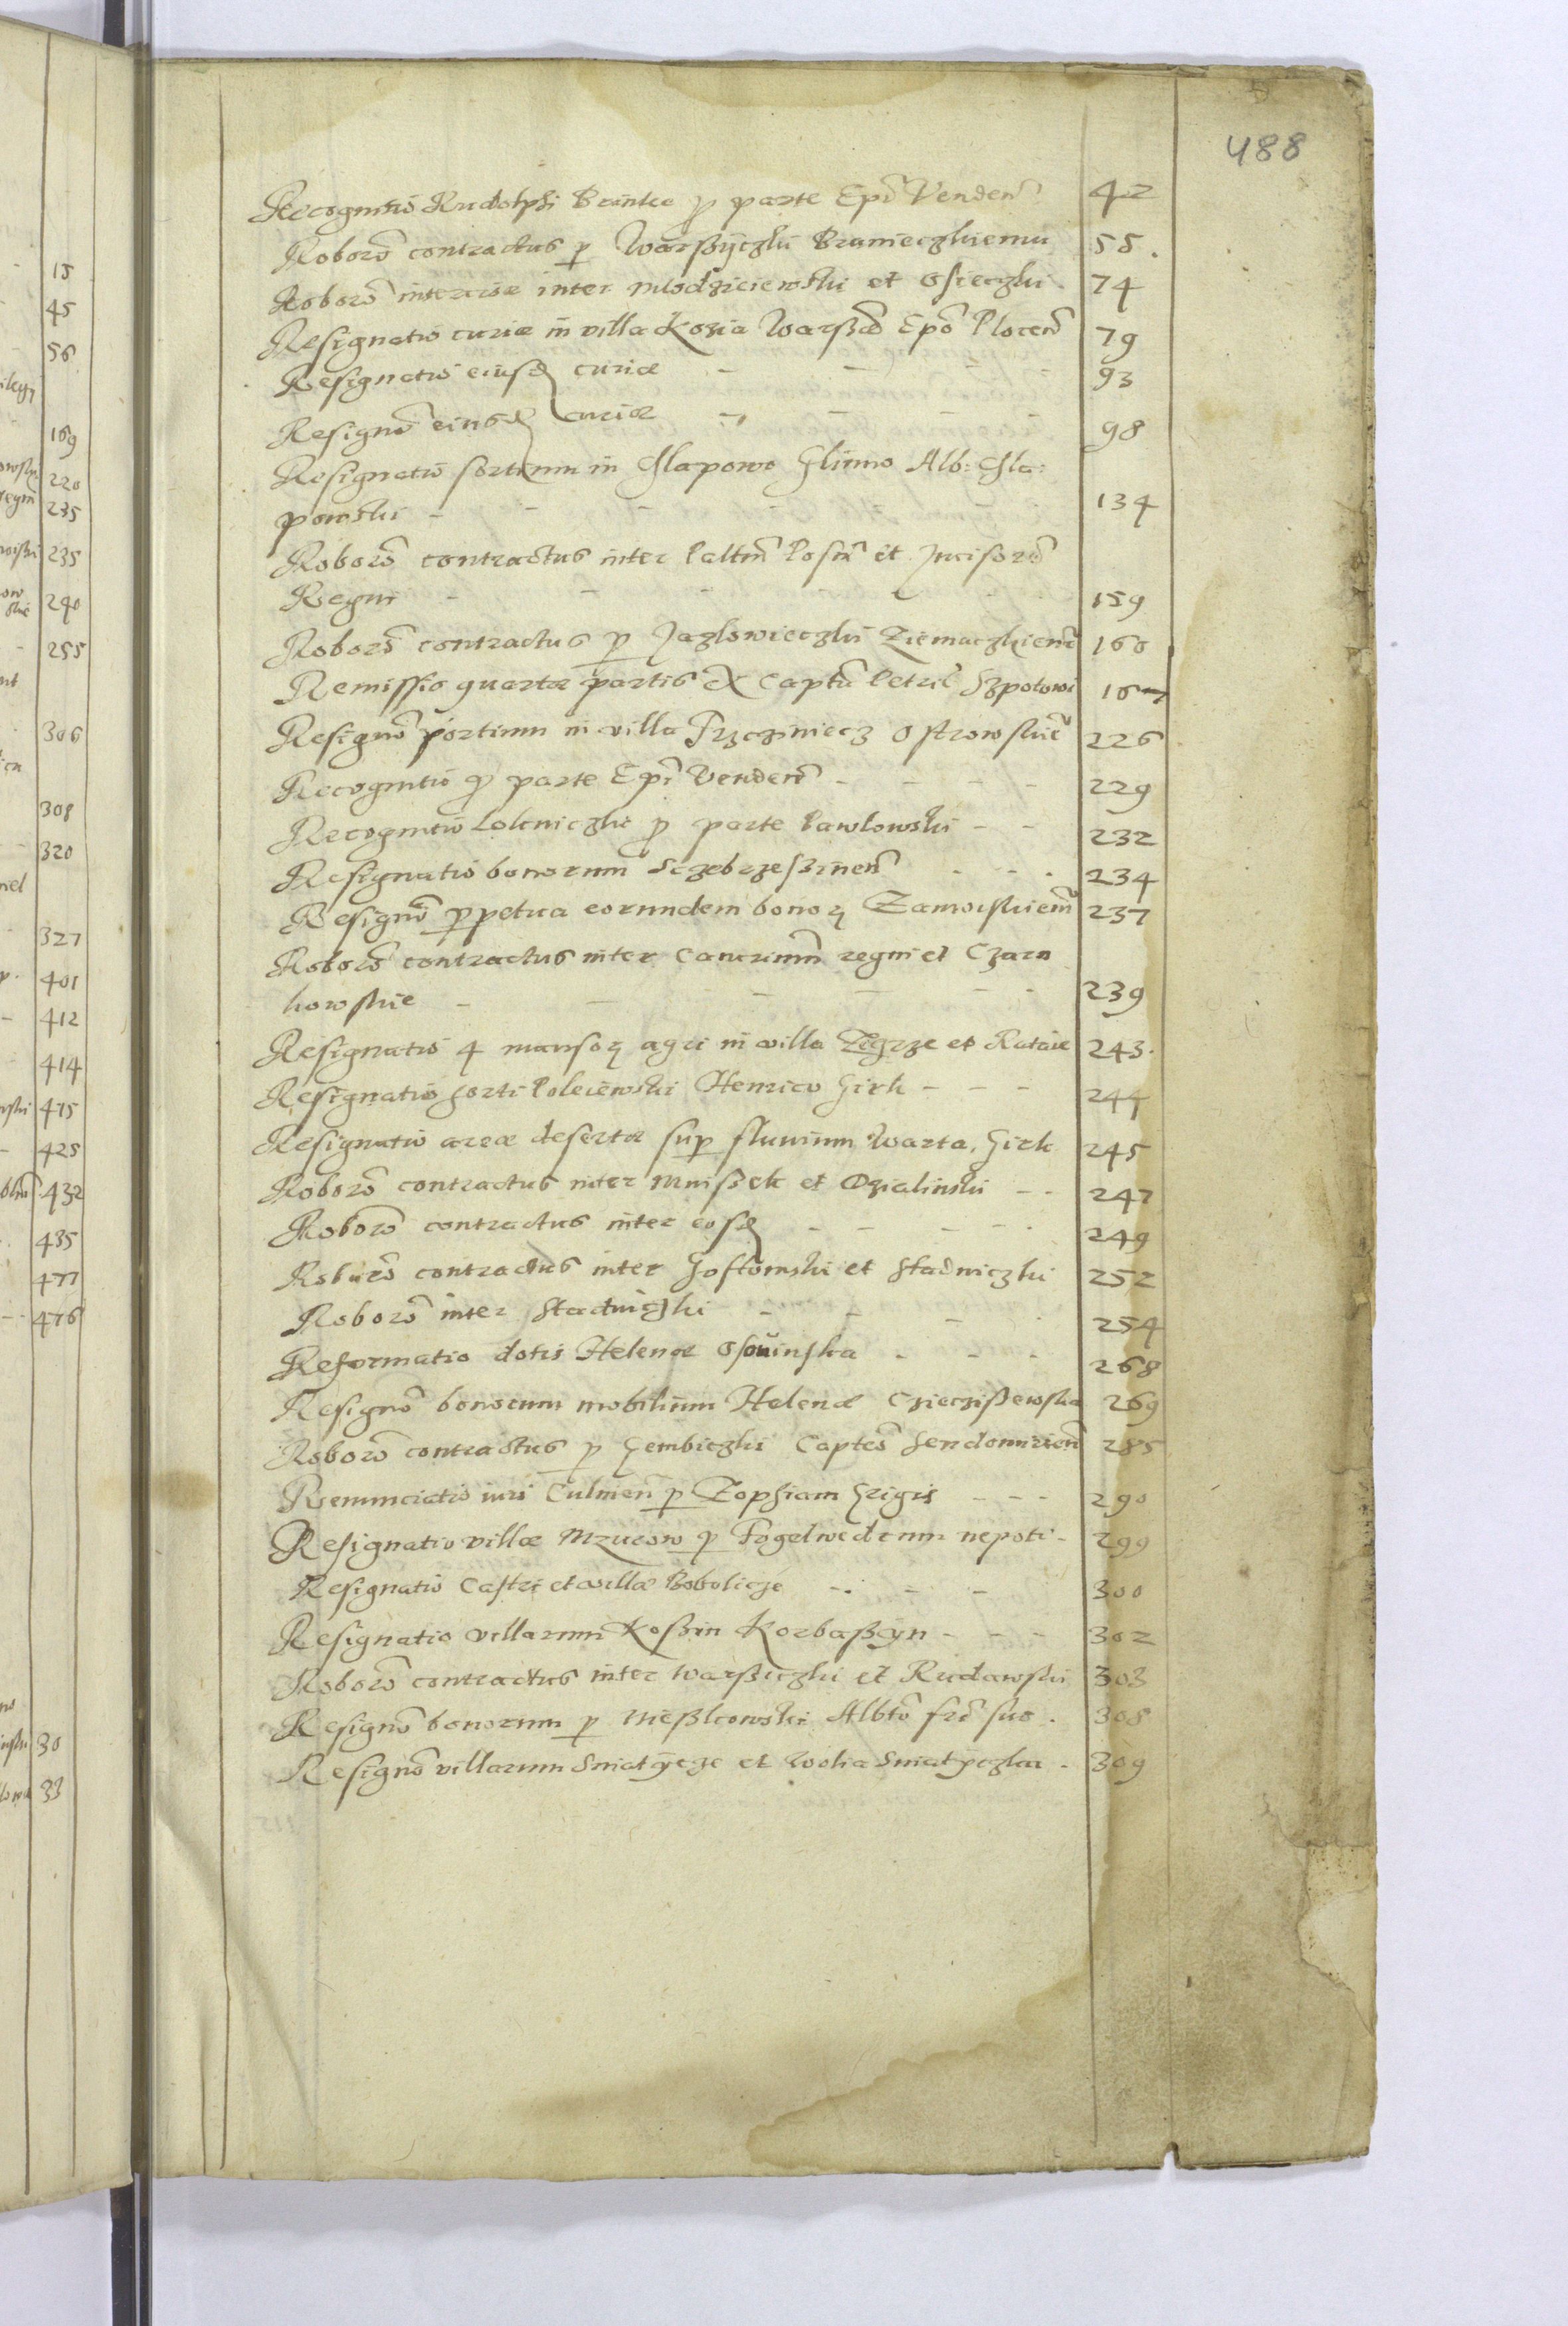 488
Recognitio Rudolphi p parte Epī Vendeñ 42
Roborō contractus p Warßyczki Branieczkiemu 58.
Roborō intercisæ inter Mlodzieiewski et Osieczki 74
Resignatio curiæ in villa Kozia Warß Epō Plocen̄ 79
Resignatio eiusd curiæ - - 93
Resignō eiusd curiæ - - - 98
Resignatio sortium in Chlapowo Glinno Alb: Chla:
powski - - - - - 134
Roborō contractus inter Paltn̄ Posn̄ et Incisorē
Regni - - - - 159
Roborō contractus p Jazlowieczki Ziemaczkiem 160
Remissio quartæ partis ex Captū Petric Szpotowi 167
Resignō portium in villa Trzcziniecz Ostrowskie 226
Recognitio p parte Epī Venden̄ - - - - 229
Recognitio p parte Pawlowski - - 232
Resignatio bonorum Sczebrzeßinen̄ - - . 234
Resignō ppetua eorundem bonoꝝ Zamoiskiem̄ 237
Roborō contractus inter Canc regni et Czarn
kowskie - - - - - - 239
Resignatio 4 mansoꝝ agri in villa Zegrze et Rataie 243.
Resignatio sorti Henrico Girk - - - 244
Resignatio areæ desertæ sup fluvium Warta, Girk 245
Roborō contractus inter Mnißek et Dzialinski - - 247
Roborō contractus inter eosd - - - - . 249
Roborō contractus inter Gostomski et Stadniczki 252
Roborō inter Stadniczki - - - . 254
Reformatio dotis Helenæ - - - 268
Resignō bonorum mobilium Helenæ Czieczißewska 269
Roborō contractus p Gembiczki Capteō Sendomirien̄ 285
Renunciatio iuri Culmen̄ p Zophiam Grigis - - - 290
Resignatio villæ Mzurow p Fogelwedrum nepoti - 299
Resignatio Castri et villæ Bobolicze - . - - 300
Resignatio villarum Koßin Korbaßcyn - - - 302
Roborō contractus inter Warßiczki et Rudawski 303
Resignō bonorum p Mießkowski Albtō frī suo . 308
Resignō villarum Sniatycze et Wolia Sniatyczka . 309
15
45
56
169
220
235
235
240
255
306
308
320
327
401
412
414
415
425
432
435
477
476
30
33